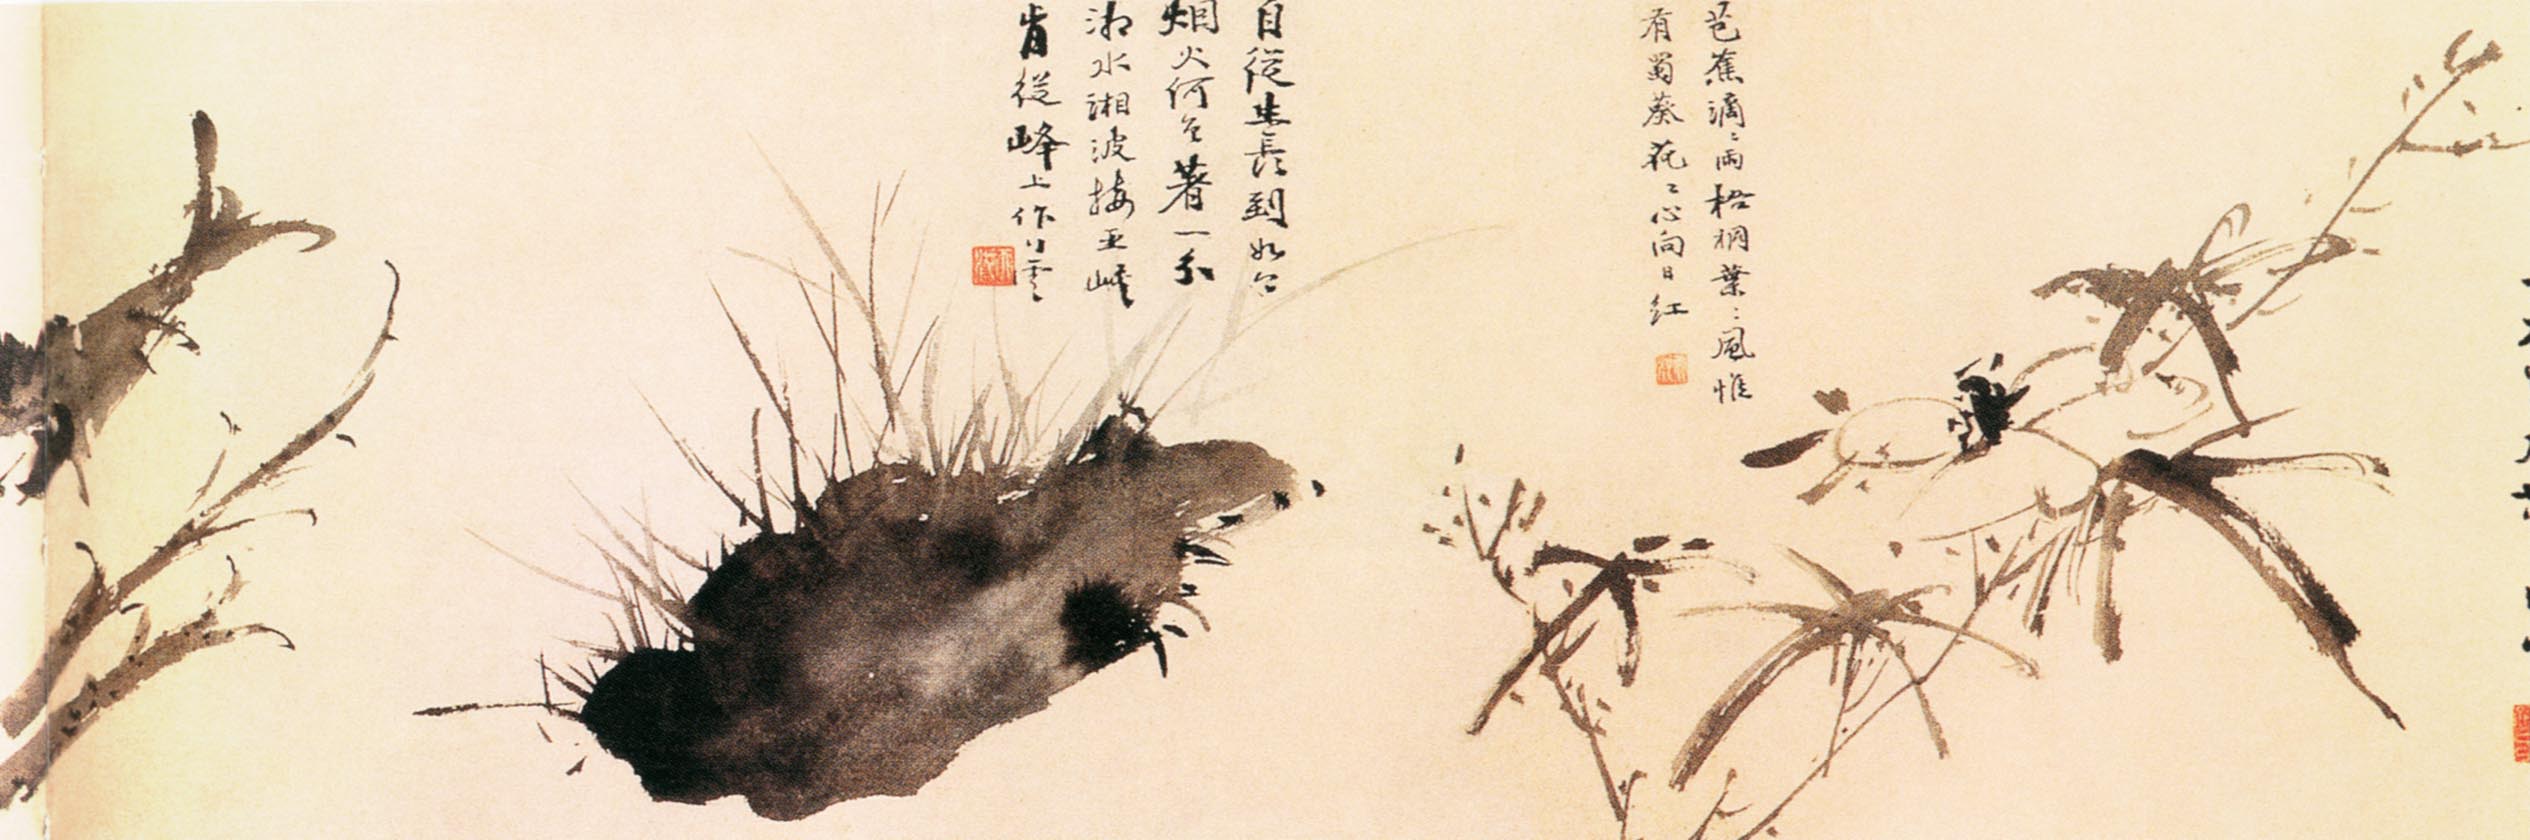 芭蕉滴〻雨梧桐葉〻風惟
有蜀葵花〻心向日紅
自從生長到如今
烟火何曾著一分
湘水湘波接巫峽
肯從峰上作行雲